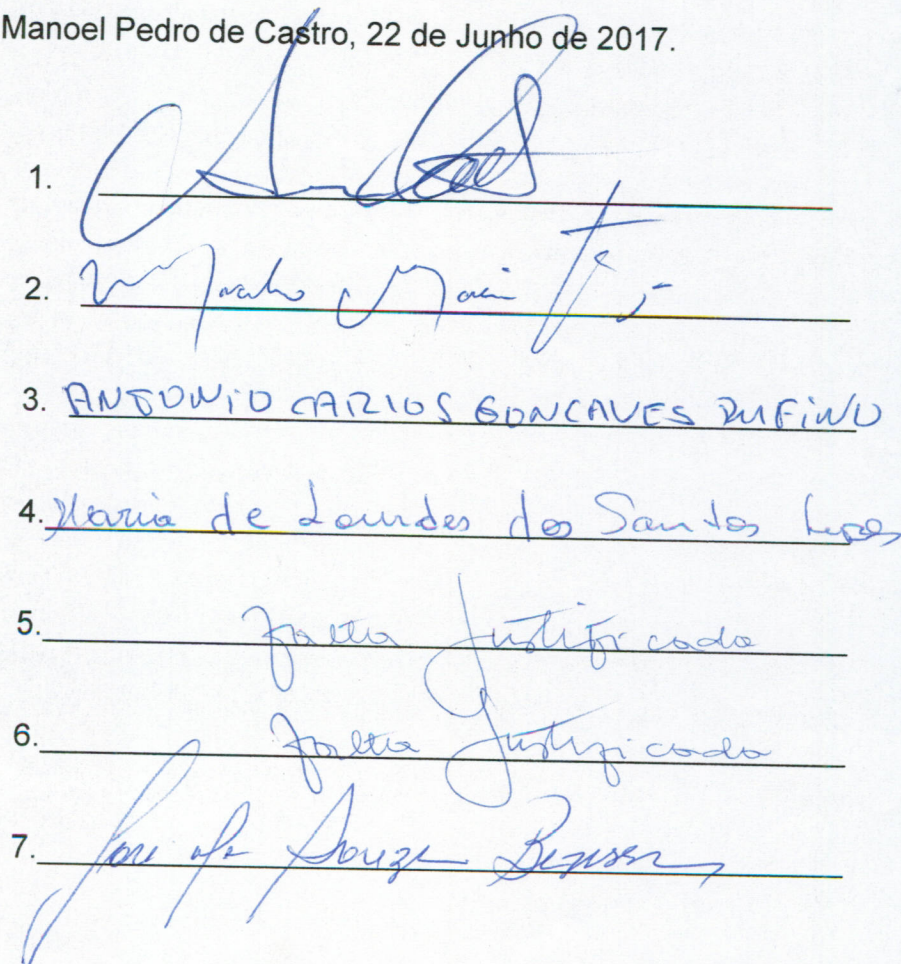 Manoel Pedro de Castro, 22 de Junho de 2017.
1.
2.
3. ANTONIO CARLOS GONCAVES RUFINO
4. Maria de Lourdes dos Santos Lopes
5. Falta Justificada
6. Falta Justificada
7. Souza Bezerra